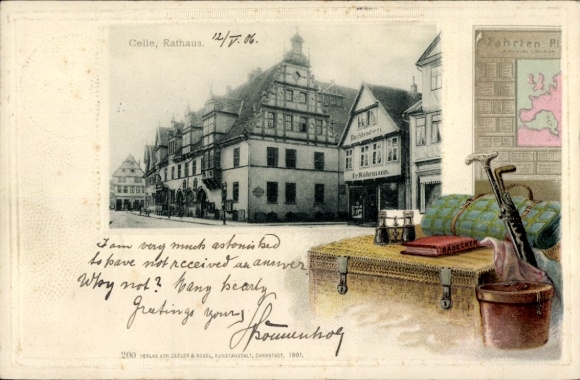 Celle, Rathaus. 12/V. 06.
Fahrten Pl
Buchbinderei
Fr. Wöhrmann.
BÄDECKER
I am very much astonished
to have not received an answer.
Why not? Vany hearty
Gratings yours
200 VERLAG VON ZEDLER & VOGEL, KUNSTANSTALT, DARMSTADT, 1901.